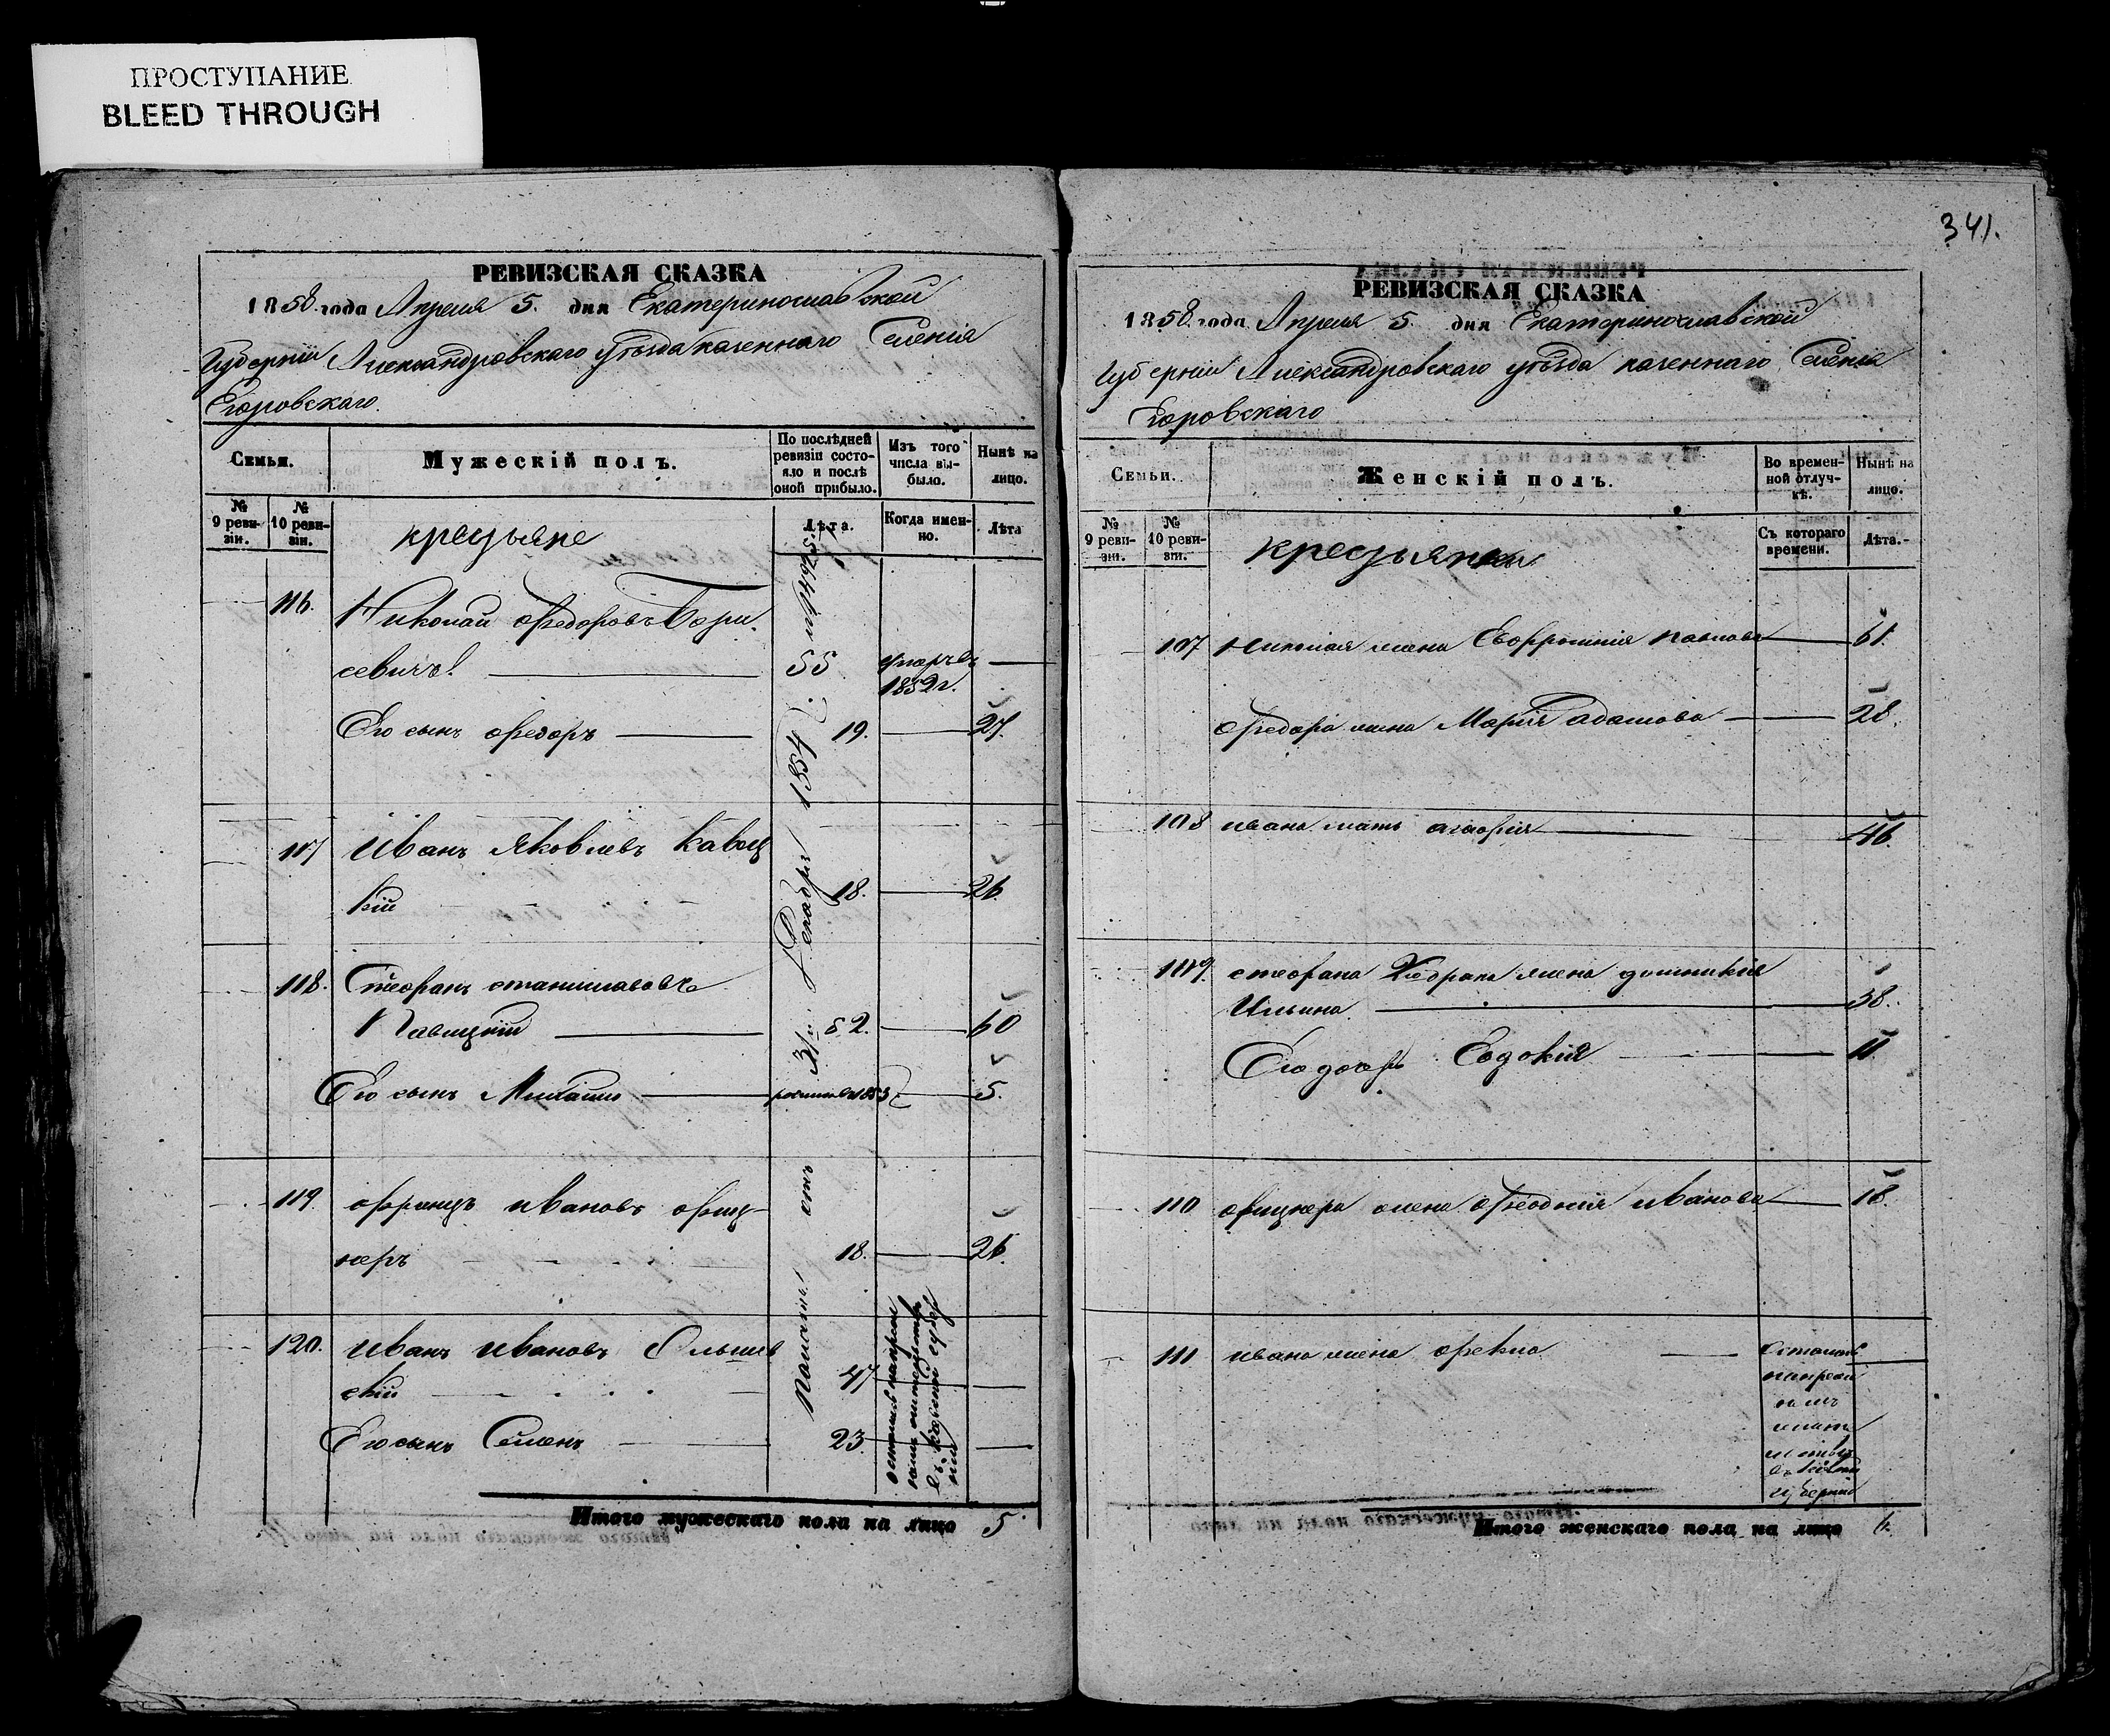 ПРОСТУПАНИЕ
BLEED THROUGH
РЕВИЗСКАЯ СКАЗКА
1858 года Апреля 5. дня Екатеринославской
Губерніи Александровскаго уѣзда казеннаго Селенія
Егоровскаго.
Семьи.
Мужескій полъ.
По послѣдней ревизіи состояло и послѣ оной прибыло.
Изъ того числа выбыло.
Нынѣ на лицо.
№ 9 ревизіи.
№ 10 ревизіи.
крестьяне
Лѣта.
Когда именно.
Лѣта
116. Николай Федоровъ Бори-
севичъ 55 умеръ въ 1852 г.
Его сынъ Федоръ 19. 27.
117 Иванъ Яковлевъ
кій 18. 26
118. Стефанъ Станиславовъ
52. 60
Его сынъ Михайло 1853 5.
119. Францъ Ивановъ Фиц-
неръ 18. 26.
120. Иванъ Ивановъ Ольшев
скій 47
Его сынъ Семенъ 23
Декабря 1854
отъ
Итого мужескаго пола на лицо 5
341.
РЕВИЗСКАЯ СКАЗКА
1858 года Апреля 5. дня Екатеринославской
Губерніи Александровскаго уѣзда казеннаго Селенія
Егоровскаго
Семьи.
Женскій полъ.
Во временной отлучкѣ.
Нынѣ на лицо.
№ 9 ревизіи.
№ 10 ревизіи.
крестьянки
Съ котораго времени.
Лѣта.
107 Николая жена Евфросинія Павлова 61.
Федора жена Марія Адамова 28.
108 Ивана мать Агафія 46.
109. Стефана жена
Ильина 38.
Его дочь Евдокія 11
110 Фицнера жена Иванова 18.
111 Ивана жена Фекла
губерніи
Итого женскаго пола на лицо 6.